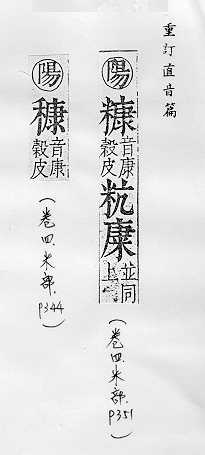 重訂直音篇
陽
糠
音康
穀皮
粇𥹺
並同
上
(卷四.米部.
P351)
陽
穅
音康
穀皮
(卷四.米部.
P344)